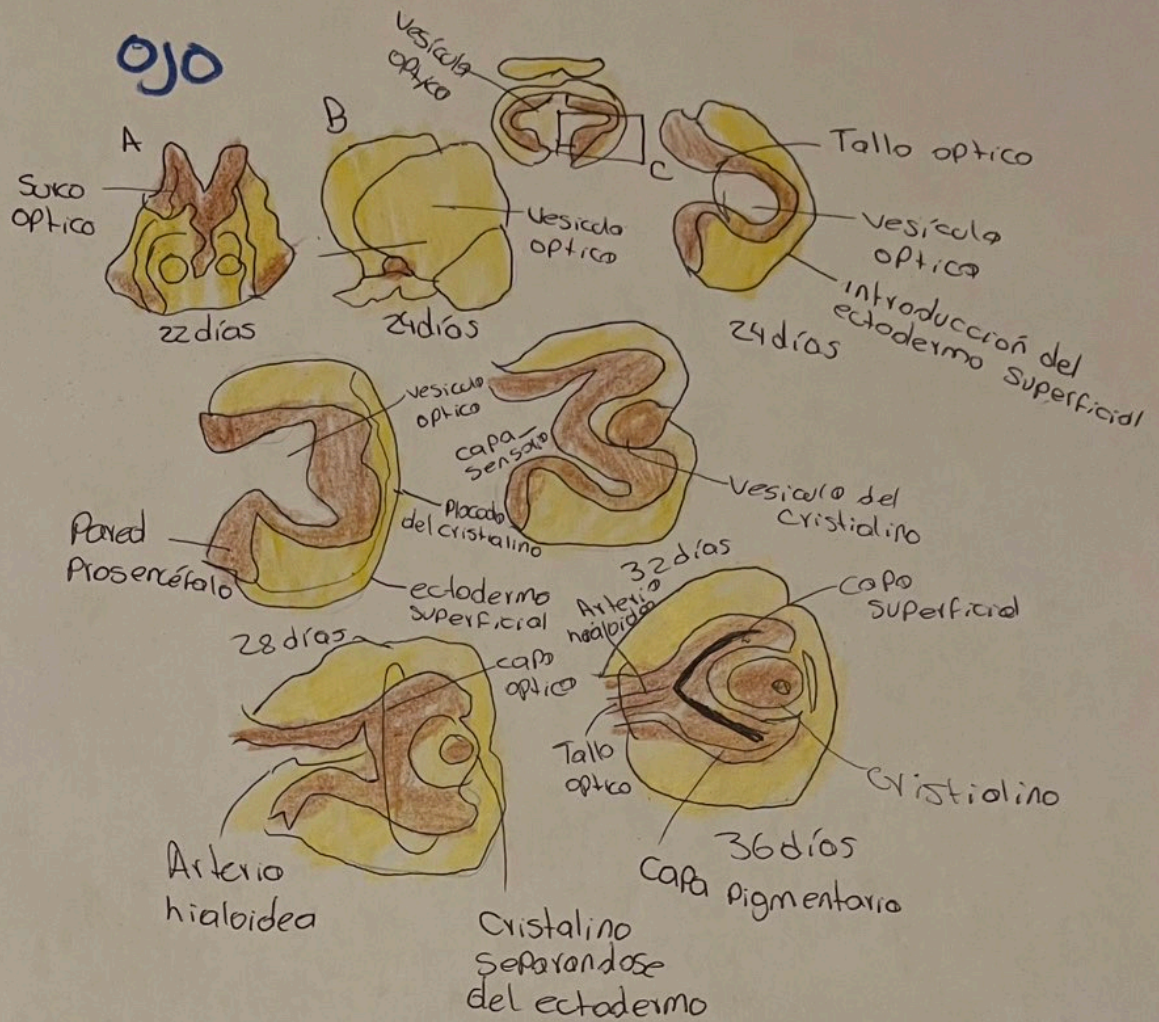 OJO
Vesícula
optica
A
B
C
Surco
optico
22 días
Vesicula
optica
24 días
Tallo optico
Vesícula
optica
introducción del
ectodermo superficial
24 días
vesicula
optica
Placoda
del cristialino
Pared
Prosencéfalo
ectodermo
superficial
28 días
capa
sensora
Vesicula del
cristialino
32 días
capa
optica
Arteria
hialoidea
Cristalino
separandose
del ectodermo
Arteria
hoáloidea
capa
superficial
Tallo
optico
cristialino
36 días
Capa Pigmentaria